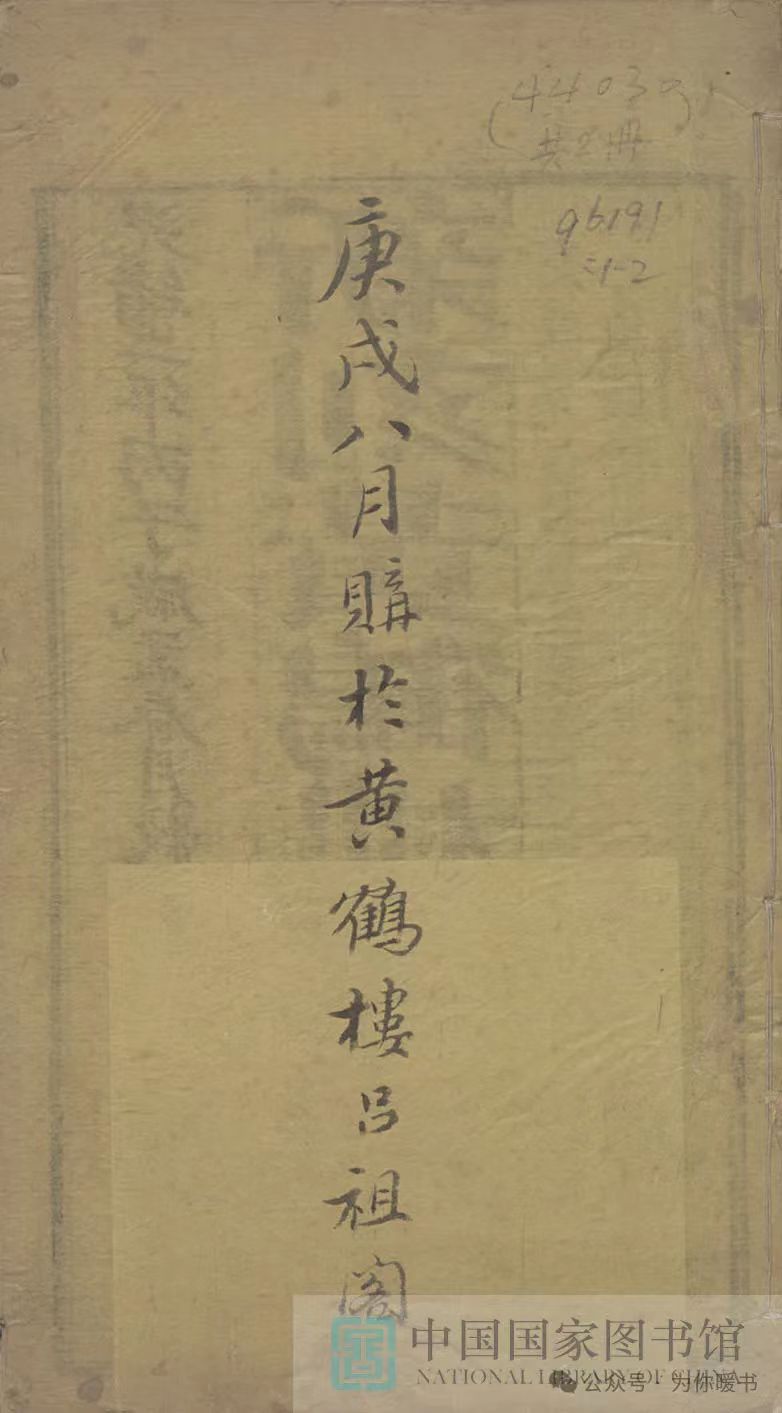 (44030)
共2册
96191
:1-2
庚戌八月購於黄鶴樓吕祖閣
中国国家图书馆
NATIONAL LIBRARY OF CHINA
公众号·为你暖书